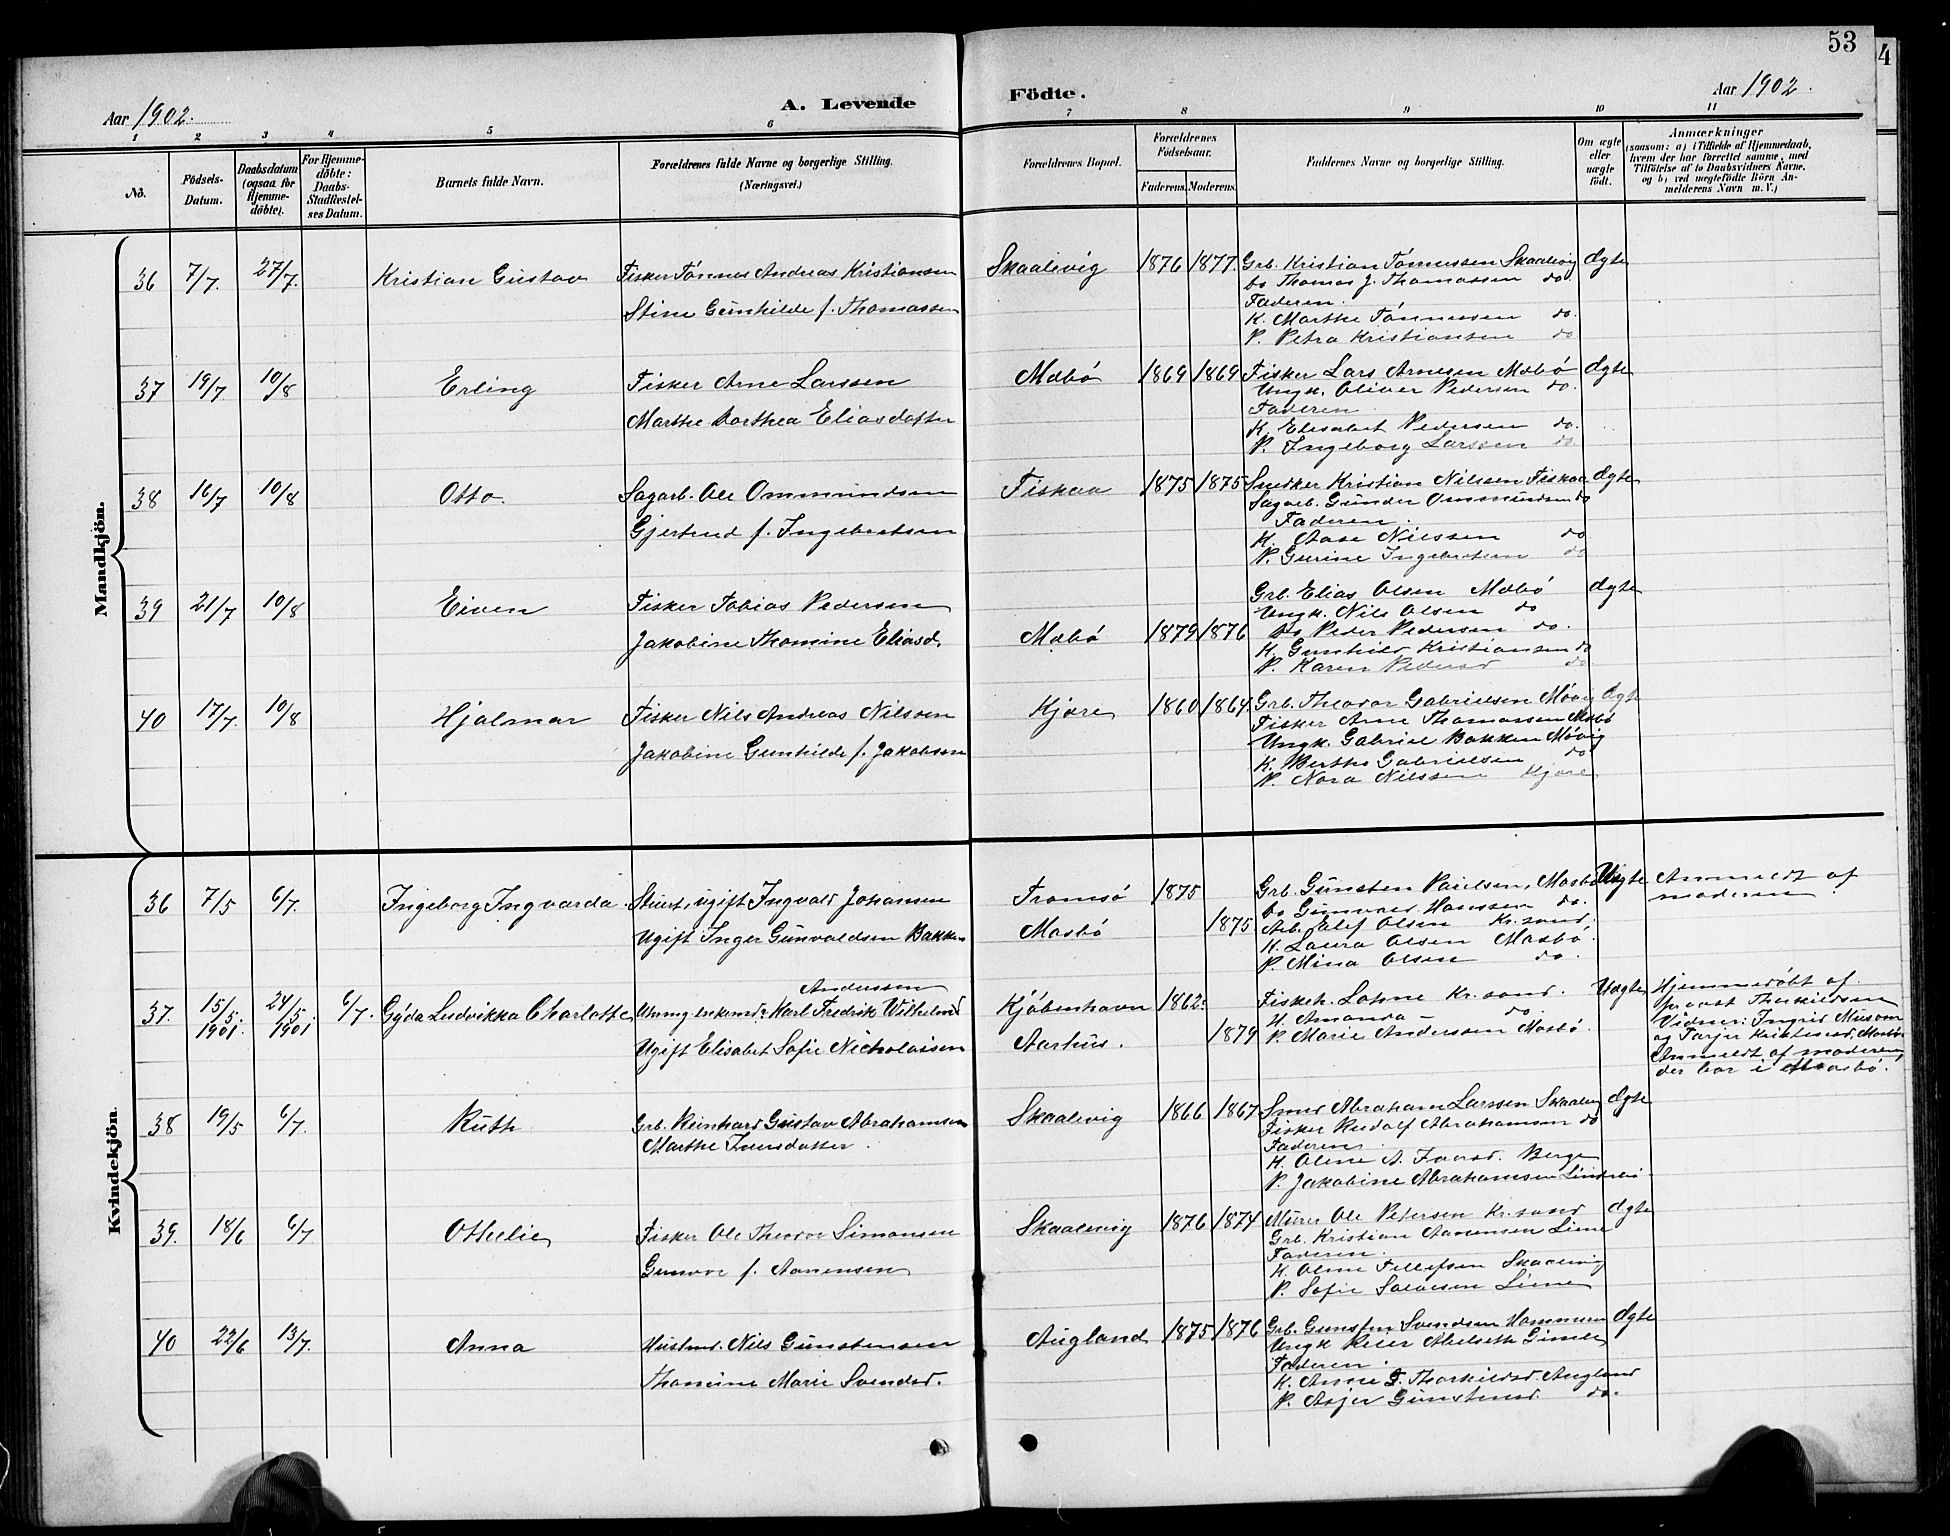 53
4
Aar 1902.
A. Levende Födte.
Aar 1902.
1 2 3 4 5 6 7 8 9 10 11
No.
Födsels-Datum.
Daabsdatum (ogsaa for Hjemme-döbte).
For Hjemme-döbte: Daabs-Stadfæstel-ses Datum.
Barnets fulde Navn.
Forældrenes fulde Navne og borgerlige Stilling. (Næringsvei.)
Forældrenes Bopæl.
Forældrenes Födselsaar.
Faderens. Moderens.
Faddernes Navne og borgerlige Stilling.
Om ægte eller uægte født.
Anmærkninger
(saasom: a) i Tilfælde af Hjemmedaab,
hvem der har forrettet samme, med
Tilföielse af to Daabsvidners Navne,
og b) ved uægtefödte Börn An-
melderens Navn m. V.)
Mandkjön.
36 7/7. 27/7. Kristian Gustav Fisker Tønnes Andreas Kristiansen Skaalevig 1876 1877. Grb. Kristian Tønnessen Skaalevig Ægte
do Thomas J. Thomassen do.
Stine Gunhilde f. Thomassen Faderen.
K. Marthe Tønnessen do.
P. Petra Kristiansen do
37 19/7 10/8 Erling Fisker Arne Larssen Mæbø 1869 1869 Fisker Lars Arnesen Mæbø Ægte
Ungk. Oliver Pedersen do.
Marthe Dorthea Eliasdatter Faderen
K. Elisabet Pedersen do.
P. Ingeborg Larssen do
38 16/7 10/8 Otto. Sagarb. Ole Ommundsen Fiskaa 1875 1875 Snedker Kristian Nilssen Fiskaa Ægte
Sagarb. Gunder Ommundsen do
Gjertrud f. Ingebretsen Faderen.
K. Aase Nilssen do
P. Gurine Ingebretsen do
39 21/7 10/8 Eiven Fisker Tobias Pedersen Grb. Elias Olsen Mæbø Ægte
Ungk. Nils Olsen do
Jakobine Thomine Eliasd. Mæbø 1879 1876 do Peder Pedersen do.
K. Gunhild Kristiansen do
P. Karen Pedersd do
40 17/7. 10/8 Hjalmar Fisker Nils Andreas Nilssen Kjøre 1860 1864. Grb. Theodor Gabrielsen Møvig Ægte
Fisker Arne Thomassen Mæbø
Jakobine Gunhilde f. Jakobsen Ungk. Gabriel Bakken Møvig
K. Berthe Gabrielsen do
P. Nora Nilssen Kjøre
Kvindekjön.
36 7/5 6/7. Ingeborg Ingvarda. Stuert, ugift Ingvald Johansen Tromsø 1875 Grb. Gunsten Paulsen, Masbø Uægte Anmeldt af
do Gunvald Hanssen do. moderen
Ugift Inger Gunvaldsen Bakken Masbø 1875. Arb. Olef Olsen Kr.sand.
K. Laura Olsen Masbø.
P. Mina Olsen do.
37. 15/5. 1901. 24/5. 1901 6/7. Gyda Ludvikka Charlotte Anderssen
Karl Fredrik Wilhelm Kjøbenhavn 1862. Fiskeh. Lohne Kr.sand. Uægte Hjemmedøbt af
K. Amanda — do. provst Thorkildsen
Ugift Elisabet Sofie Nicholaisen Aarhus. 1879 P. Marie Anderssen Mosbø. Vidner: Ingrid
og Tarje Kristensd, Masbø
Anmeldt af moderen,
der bor i Mosbø.
38 19/5 6/7. Ruth Grb. Reinhard Gustav Abrahamsen Skaalevig 1866 1867 Smed Abraham Larssen Skaalevig Ægte
Marthe Iversdatter Fisker Rudolf Abrahamsen do
Faderen.
K. Oline A. Berge
P. Jakobine Abrahamsen
39. 18/6 6/7 Othelie Fisker Ole Theodor Simonsen Skaalevig 1876 1874 Murer Ole Petersen Kr.sand Ægte
Grb. Kristian Aanensen Liene
Gunvor f. Aanensen Faderen.
K. Oline Tellefsen Skaalevig
P. Sofie Salvesen Liene
40 22/6 13/7. Anna Husmd. Nils Gunstensen Augland 1875 1876 Grb. Gunsten Svendsen Hammeren Ægte
Ungk Peter Abelseth Gimle
Thomine Marie Svendsd. Faderen.
K. Anne G. Thorkildsd. Augland
P. Asjer Gunstensd. do.